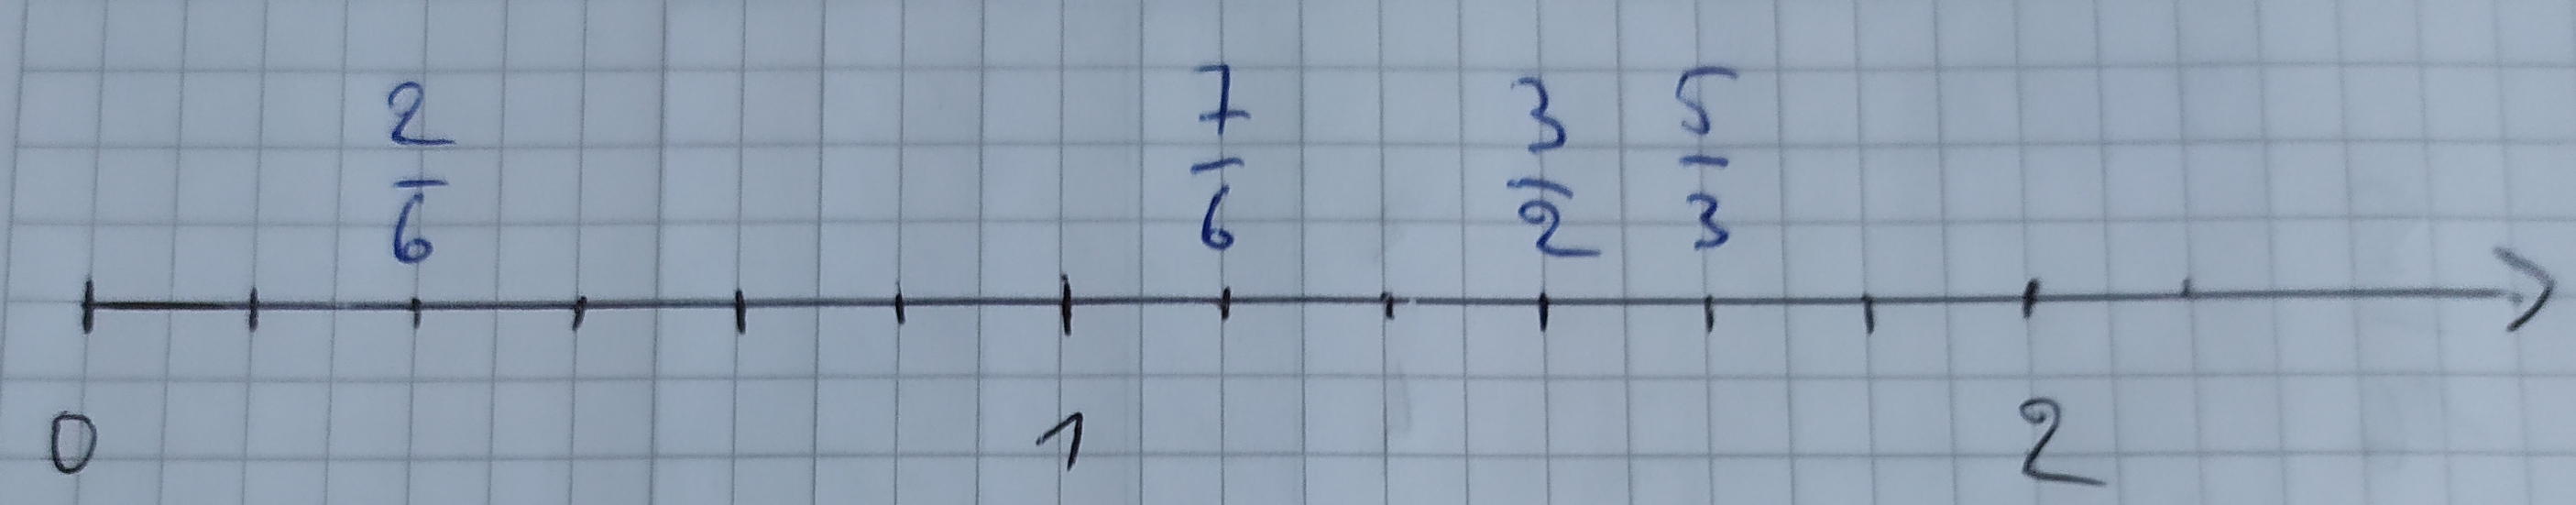 2/6 7/6 3/2 5/3
0 1 2